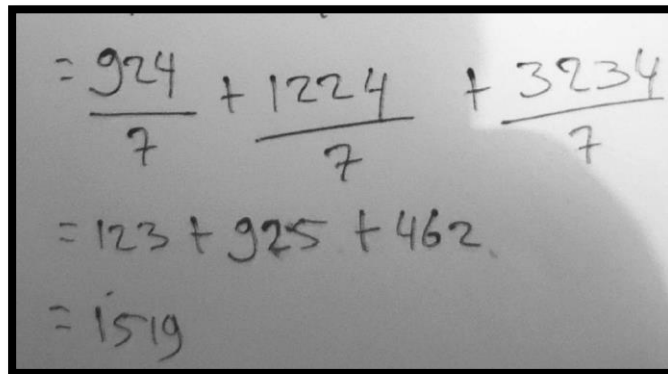 = 924/7 + 1224/7 + 3234/7
= 123 + 925 + 462
= 1519